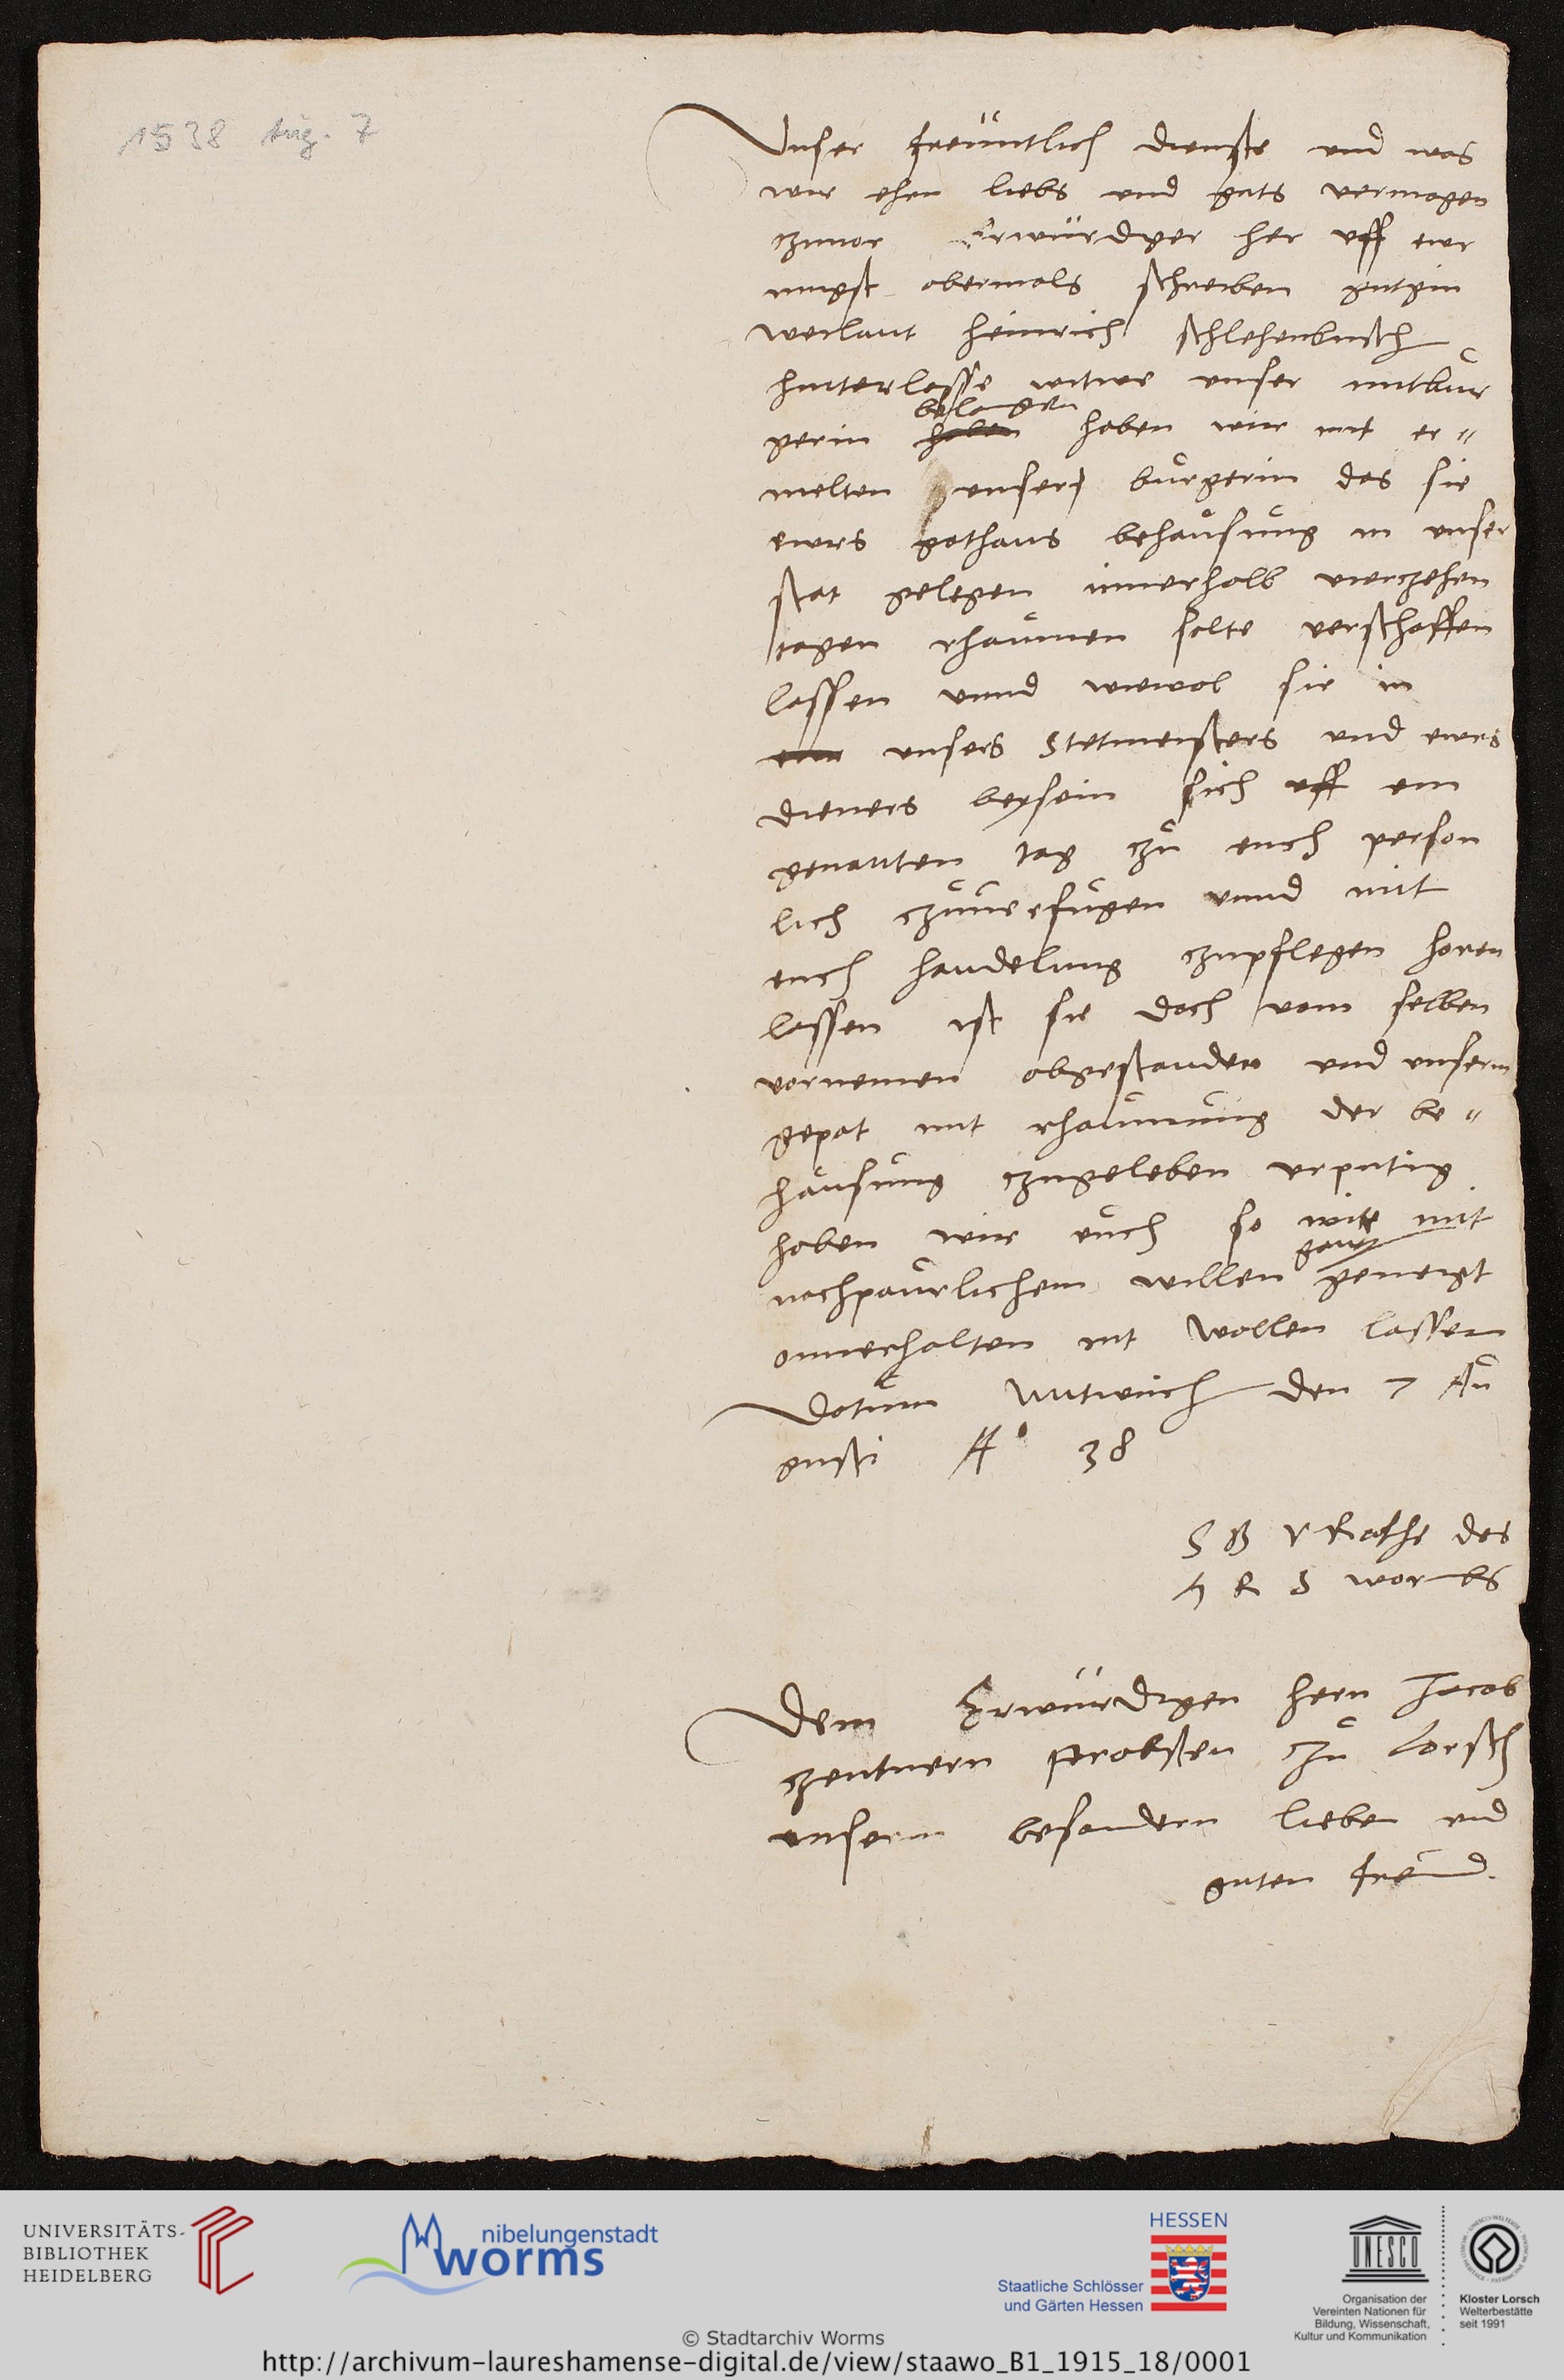 1538 Aug. 7
Vnser freuntlich dienste vnd was
wir ehrn liebs vnd guts vermogen
czuuor Erwürdger her vff ewr
iungst abermals schreiben
weilant Heinrich schlehenbusch
hinterlasse witwe vnser mitbur
belangen
gerin haben haben wir mit er-
melten vnser burgerin das sie
ewrs gothaus behausung in vnser
stat gelegen innerhalb vierczehen
tagen rhaumen solte verschaffen
lassen vnnd wiewol sie in
vnsers Stetmeisters vnd ewrs
dieners beysein sich vff ein
genanten tag czu euch person
lich czuuerfugen vnnd mit
euch handelung czupflegen horen
lassen ist sie doch vom selben
vornemen abgestanden vnd vnserm
gepot mit rhaumung der be-
hausung czugeleben vrputig
haben wir euch so wir mit
gantz
nachpaurlichem willen geneigt
onuerhalten nit wollen lassen
Datum Mitwuch den 7 Au
gusti A° 38
S B V Rathe des
H R S wormbs
Dem Erwürdigen hern Jacob
Zentnern Probsten Zu Lorsch
vnserm besondern lieben vnd
guten freund.
UNIVERSITÄTS-
BIBLIOTHEK
HEIDELBERG
nibelungenstadt
worms
HESSEN
Staatliche Schlösser
und Gärten Hessen
UNESCO
Organisation der
Vereinten Nationen für
Bildung, Wissenschaft,
Kultur und Kommunikation
Kloster Lorsch
Welterbestätte
seit 1991
© Stadtarchiv Worms
http://archivum-laureshamense-digital.de/view/staawo_B1_1915_18/0001